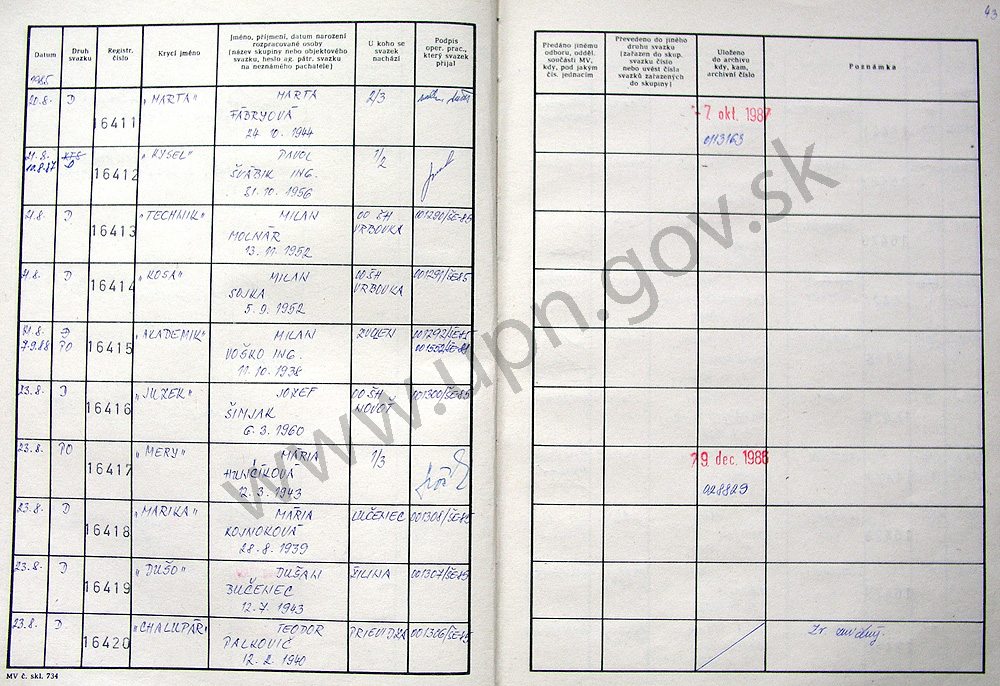 43
Datum
Druh svazku
Registr. číslo
Krycí jméno
Jméno, příjmení, datum narození
rozpracované osoby
(název skupiny nebo objektového
svazku, heslo ag. pátr. svazku
na neznámého pachatele)
U koho se
svazek
nachází
Podpis
oper. prac.,
který svazek
přijal
Předáno jinému
odboru, odděl.
součásti MV,
kdy, pod jakým
čís. jednacím
Převedeno do jiného
druhu svazku
(zařazen do skup.
svazku číslo
nebo uvést čísla
svazků zařazených
do skupiny)
Uloženo
do archivu
kdy, kam,
archivní číslo
Poznámka
1985
20.8. D 16411 „MARTA" MARTA 2/3
FÁBRYOVÁ
24. 10. 1944
-7 okt. 1987
0113163
21.8. D 16412 „KYSEL" PAVOL 1/2
ŠVÁBIK ING.
31. 10. 1956
21.8. D 16413 „TECHNIK" MILAN OO ŠH VRBOVKA 001290/ŠE-85
MOLNÁR
13. 11. 1952
21.8. D 16414 „KOSA" MILAN OO ŠH VRBOVKA 001291/ŠE-85
SOJKA
5. 9. 1952
21.8. D 16415 „AKADEMIK" MILAN ZVOLEN 001292/ŠE-85
7.9.88 PO VOŠKO ING.
11. 10. 1938
23.8. D 16416 „JUZEK" JOZEF OO ŠH NOVOŤ 001300/ŠE-85
ŠIMJAK
6. 3. 1960
23.8. PO 16417 „MERY" MÁRIA 1/3
HUNČÍKOVÁ
12. 3. 1943
29. dec. 1986
028829
23.8. D 16418 „MARIKA" MÁRIA LUČENEC 001308/ŠE-85
KOJNOKOVÁ
28. 8. 1939
23.8. D 16419 „DUŠO" DUŠAN ŽILINA 001307/ŠE-85
BUČENEC
12. 7. 1943
23.8. D 16420 „CHALUPÁŘ" TEODOR PRIEVIDZA 001306/ŠE-85
PALKOVIČ
12. 2. 1940
MV č. skl. 734
www.upn.gov.sk